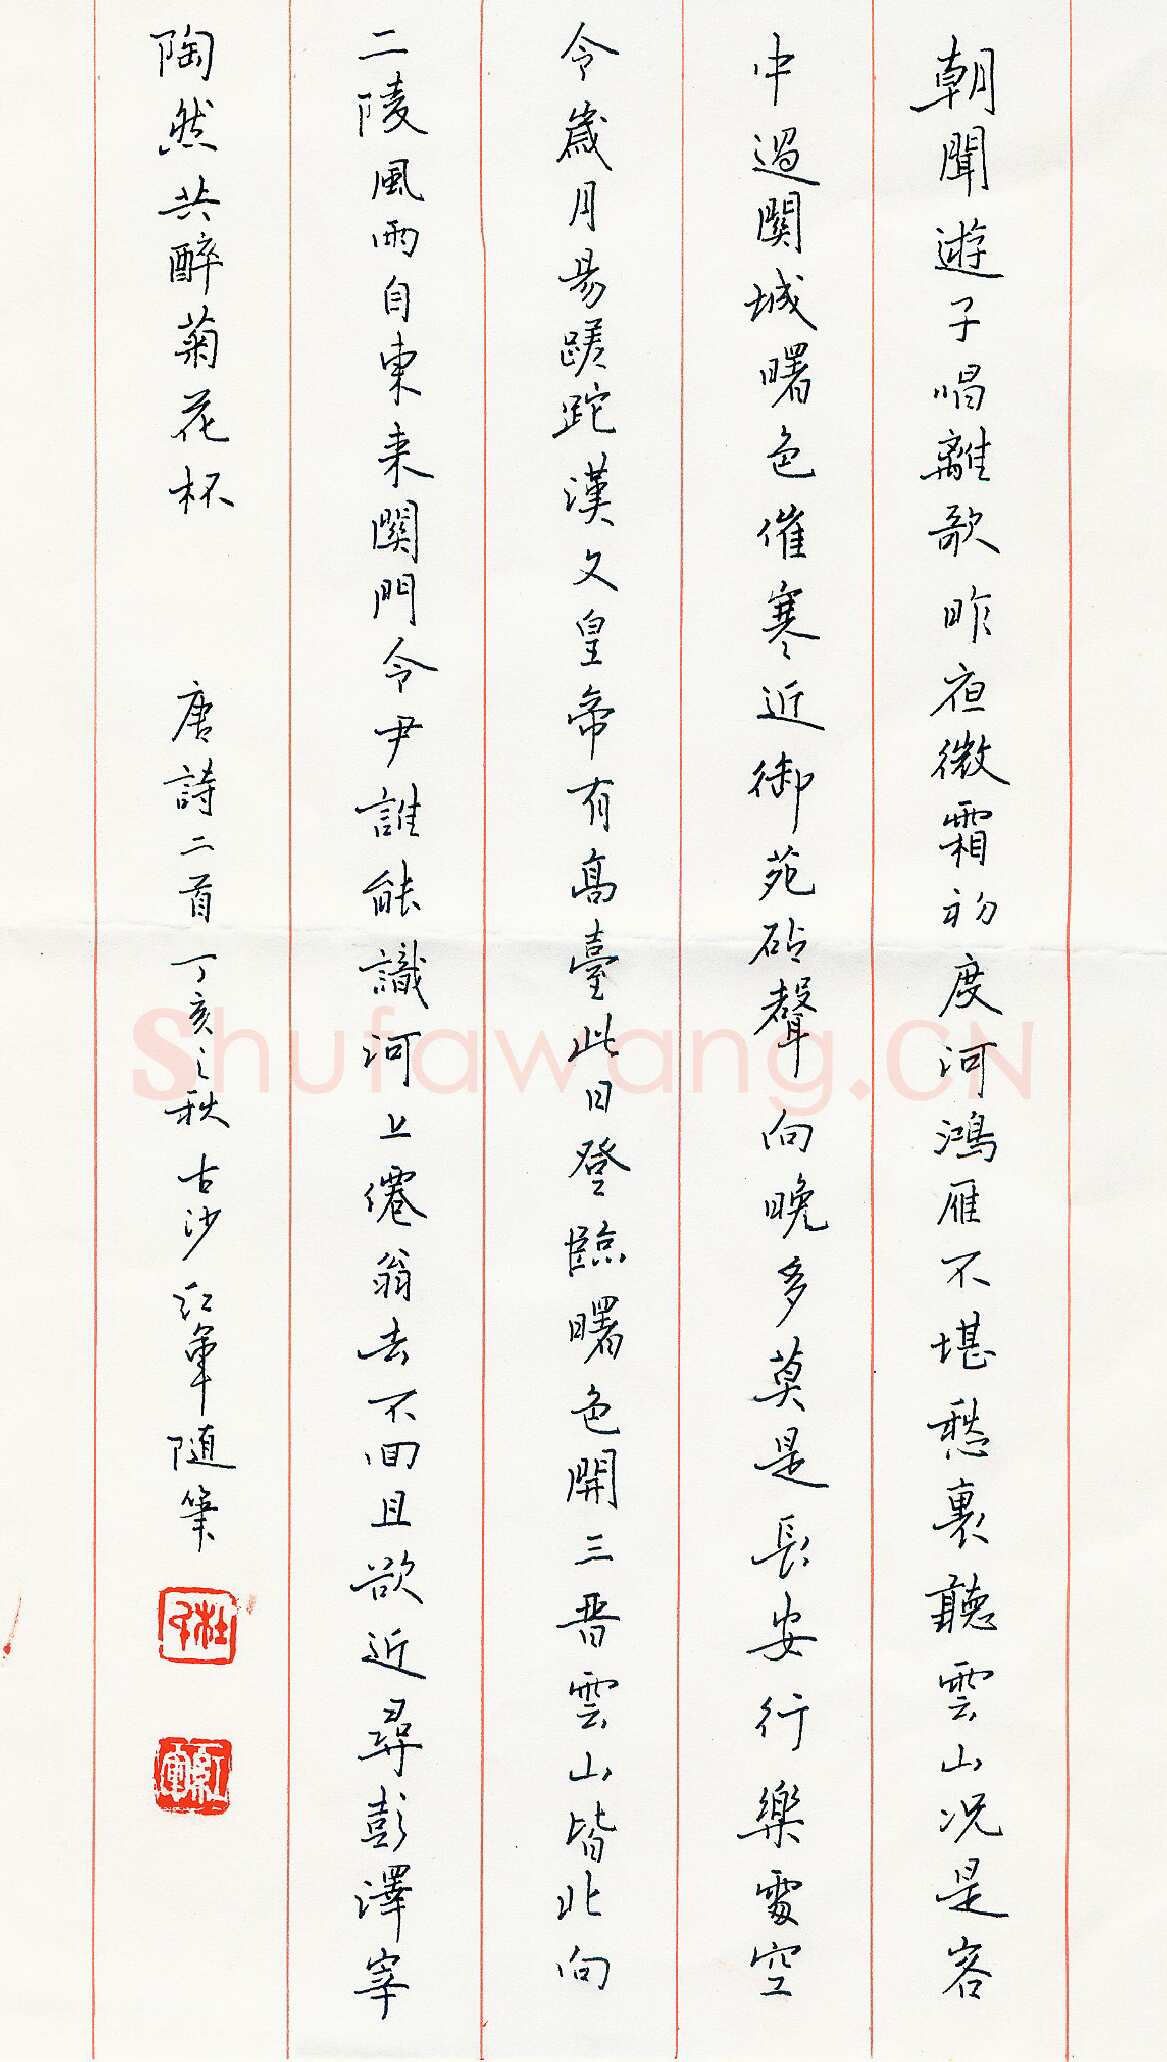 朝聞遊子唱離歌昨夜微霜初度河鴻雁不堪愁裏聽雲山況是客
中過關城曙色催寒近御苑砧聲向晚多莫是長安行樂處空
令歲月易蹉跎漢文皇帝有高臺此日登臨曙色開三晉雲山皆北向
二陵風雨自東來關門令尹誰能識河上僊翁去不回且欲近尋彭澤宰
陶然共醉菊花杯 唐詩二首丁亥之秋古沙紅軍随筆
紅軍
Shufawang.CN